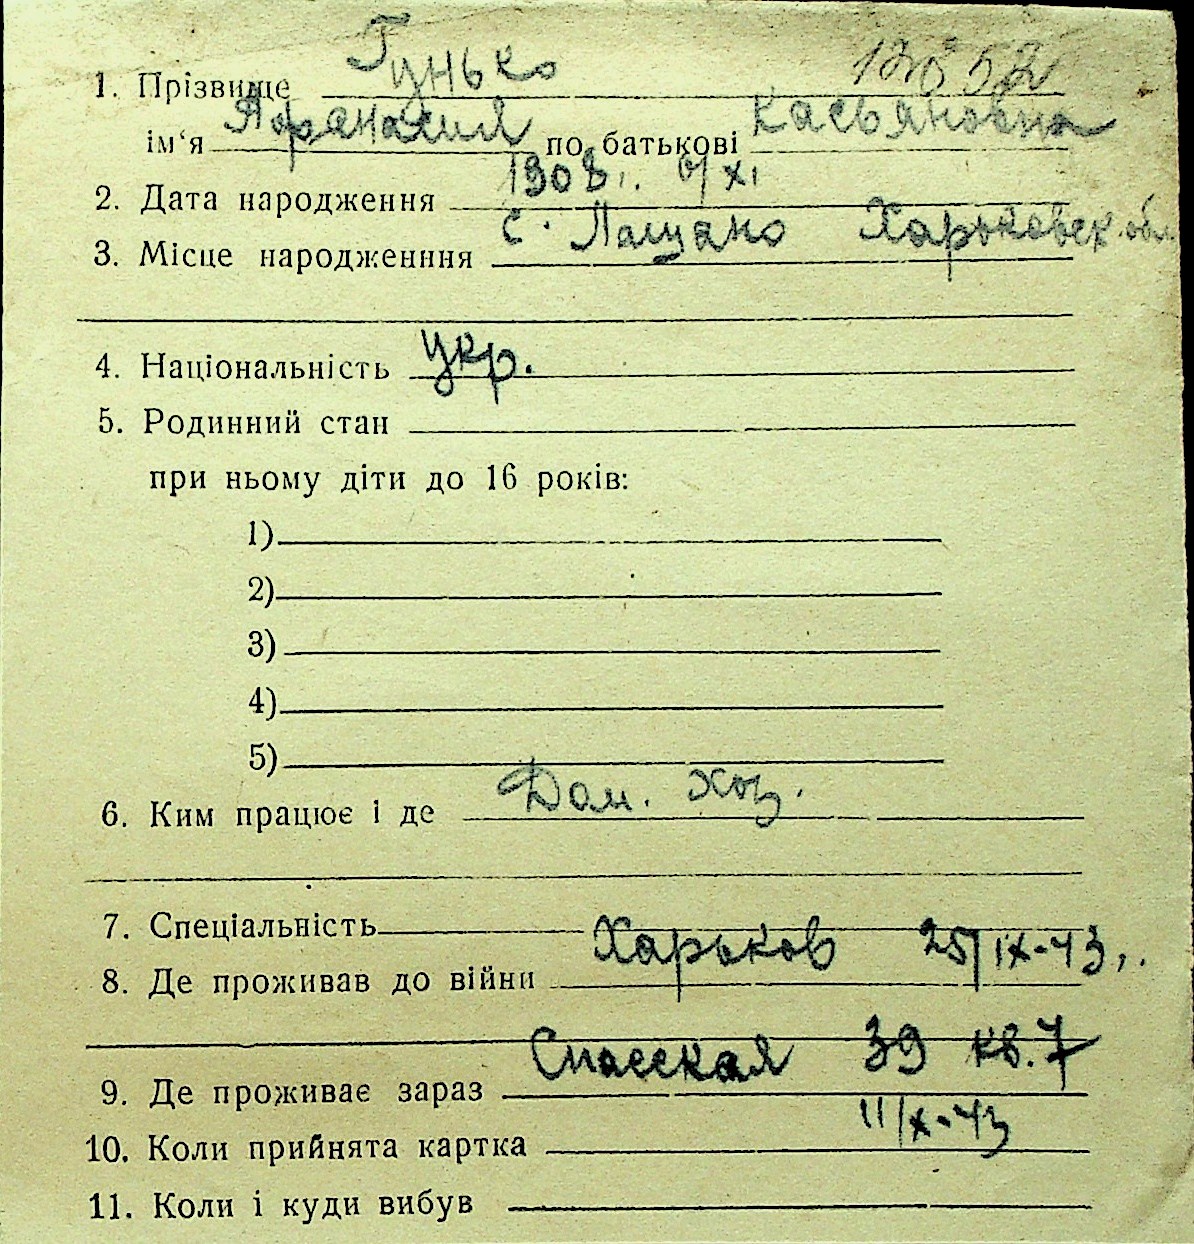 1. Прізвище Гунько 12852
ім‘я Афанасия по батькові Касьяновна
2. Дата народження 1908 г. 6/XI
3. Місце народженння с. Лащано Харьковск. обл.
4. Національність Укр.
5. Родинний стан
при ньому діти до 16 років:
1)
2)
3)
4)
5)
6. Ким працює і де Дом. хоз.
7. Спеціальність
8. Де проживав до війни Харьков 25/IX-43 г.
9. Де проживає зараз Спасская 39 кв. 7
10. Коли прийнята картка 11/X-43
11. Коли і куди вибув